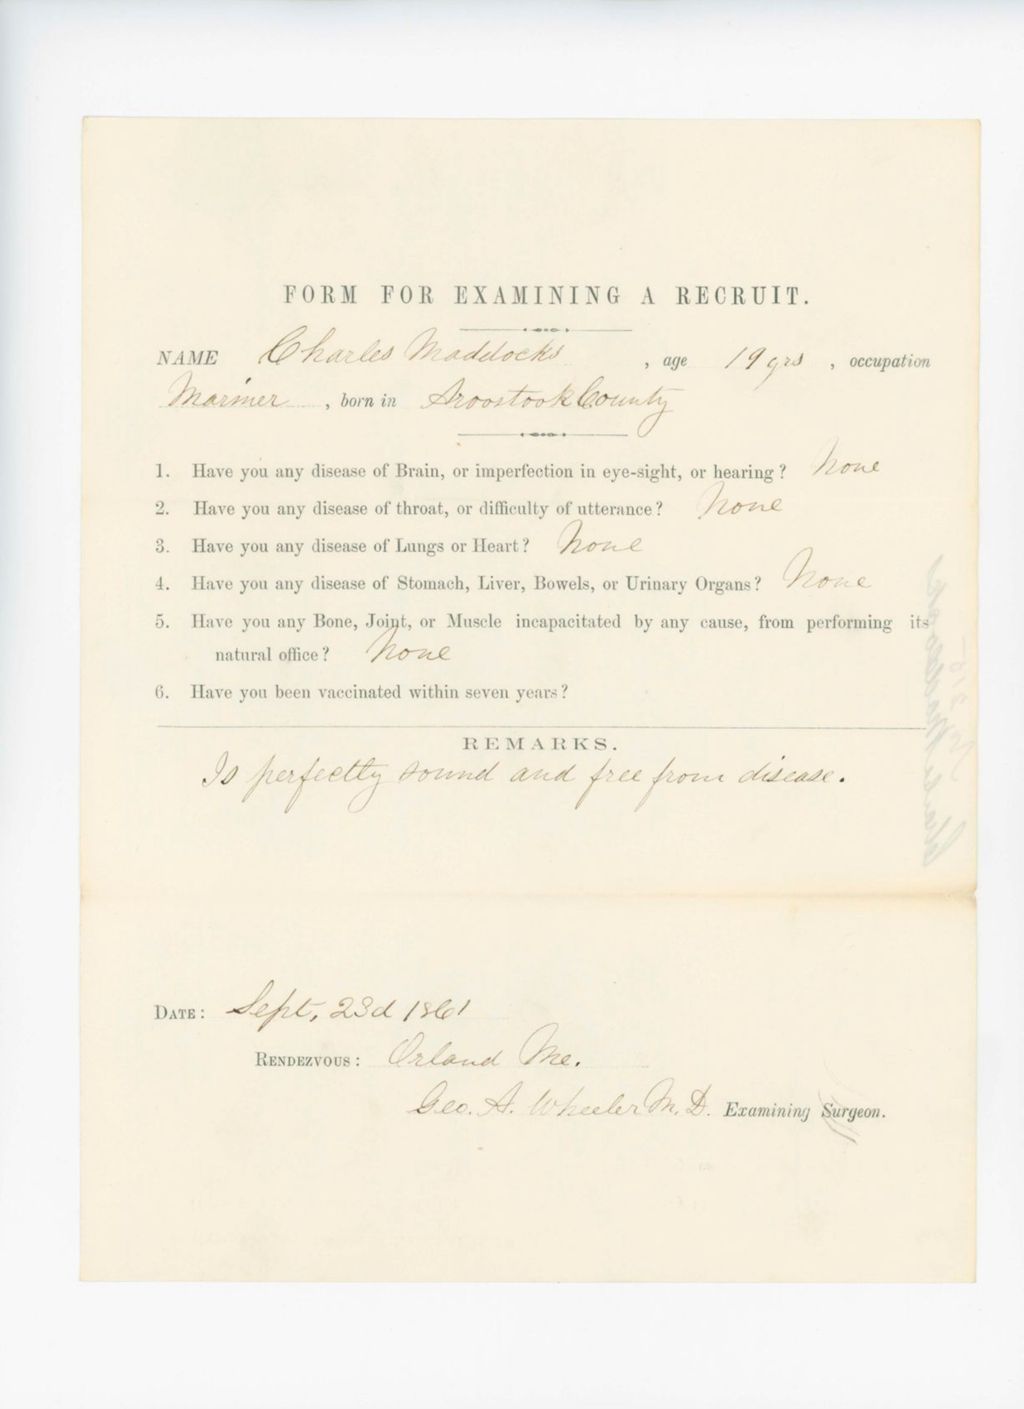 FORM FOR EXAMINING A RECRUIT.
NAME Charles Maddocks , age 19 yrs , occupation
Mariner , born in Aroostook County
1. Have you any disease of Brain, or imperfection in eye-sight, or hearing? None
2. Have you any disease of throat, or difficulty of utterance? None
3. Have you any disease of Lungs or Heart? None
4. Have you any disease of Stomach, Liver, Bowels, or Urinary Organs? None
5. Have you any Bone, Joint, or Muscle incapacitated by any cause, from performing its
natural office? None
6. Have you been vaccinated within seven years?
REMARKS.
Is perfectly sound and free from disease.
DATE: Sept, 23d 1861
RENDEZVOUS: Orland Me.
Geo. A. Wheeler M. D. Examining Surgeon.